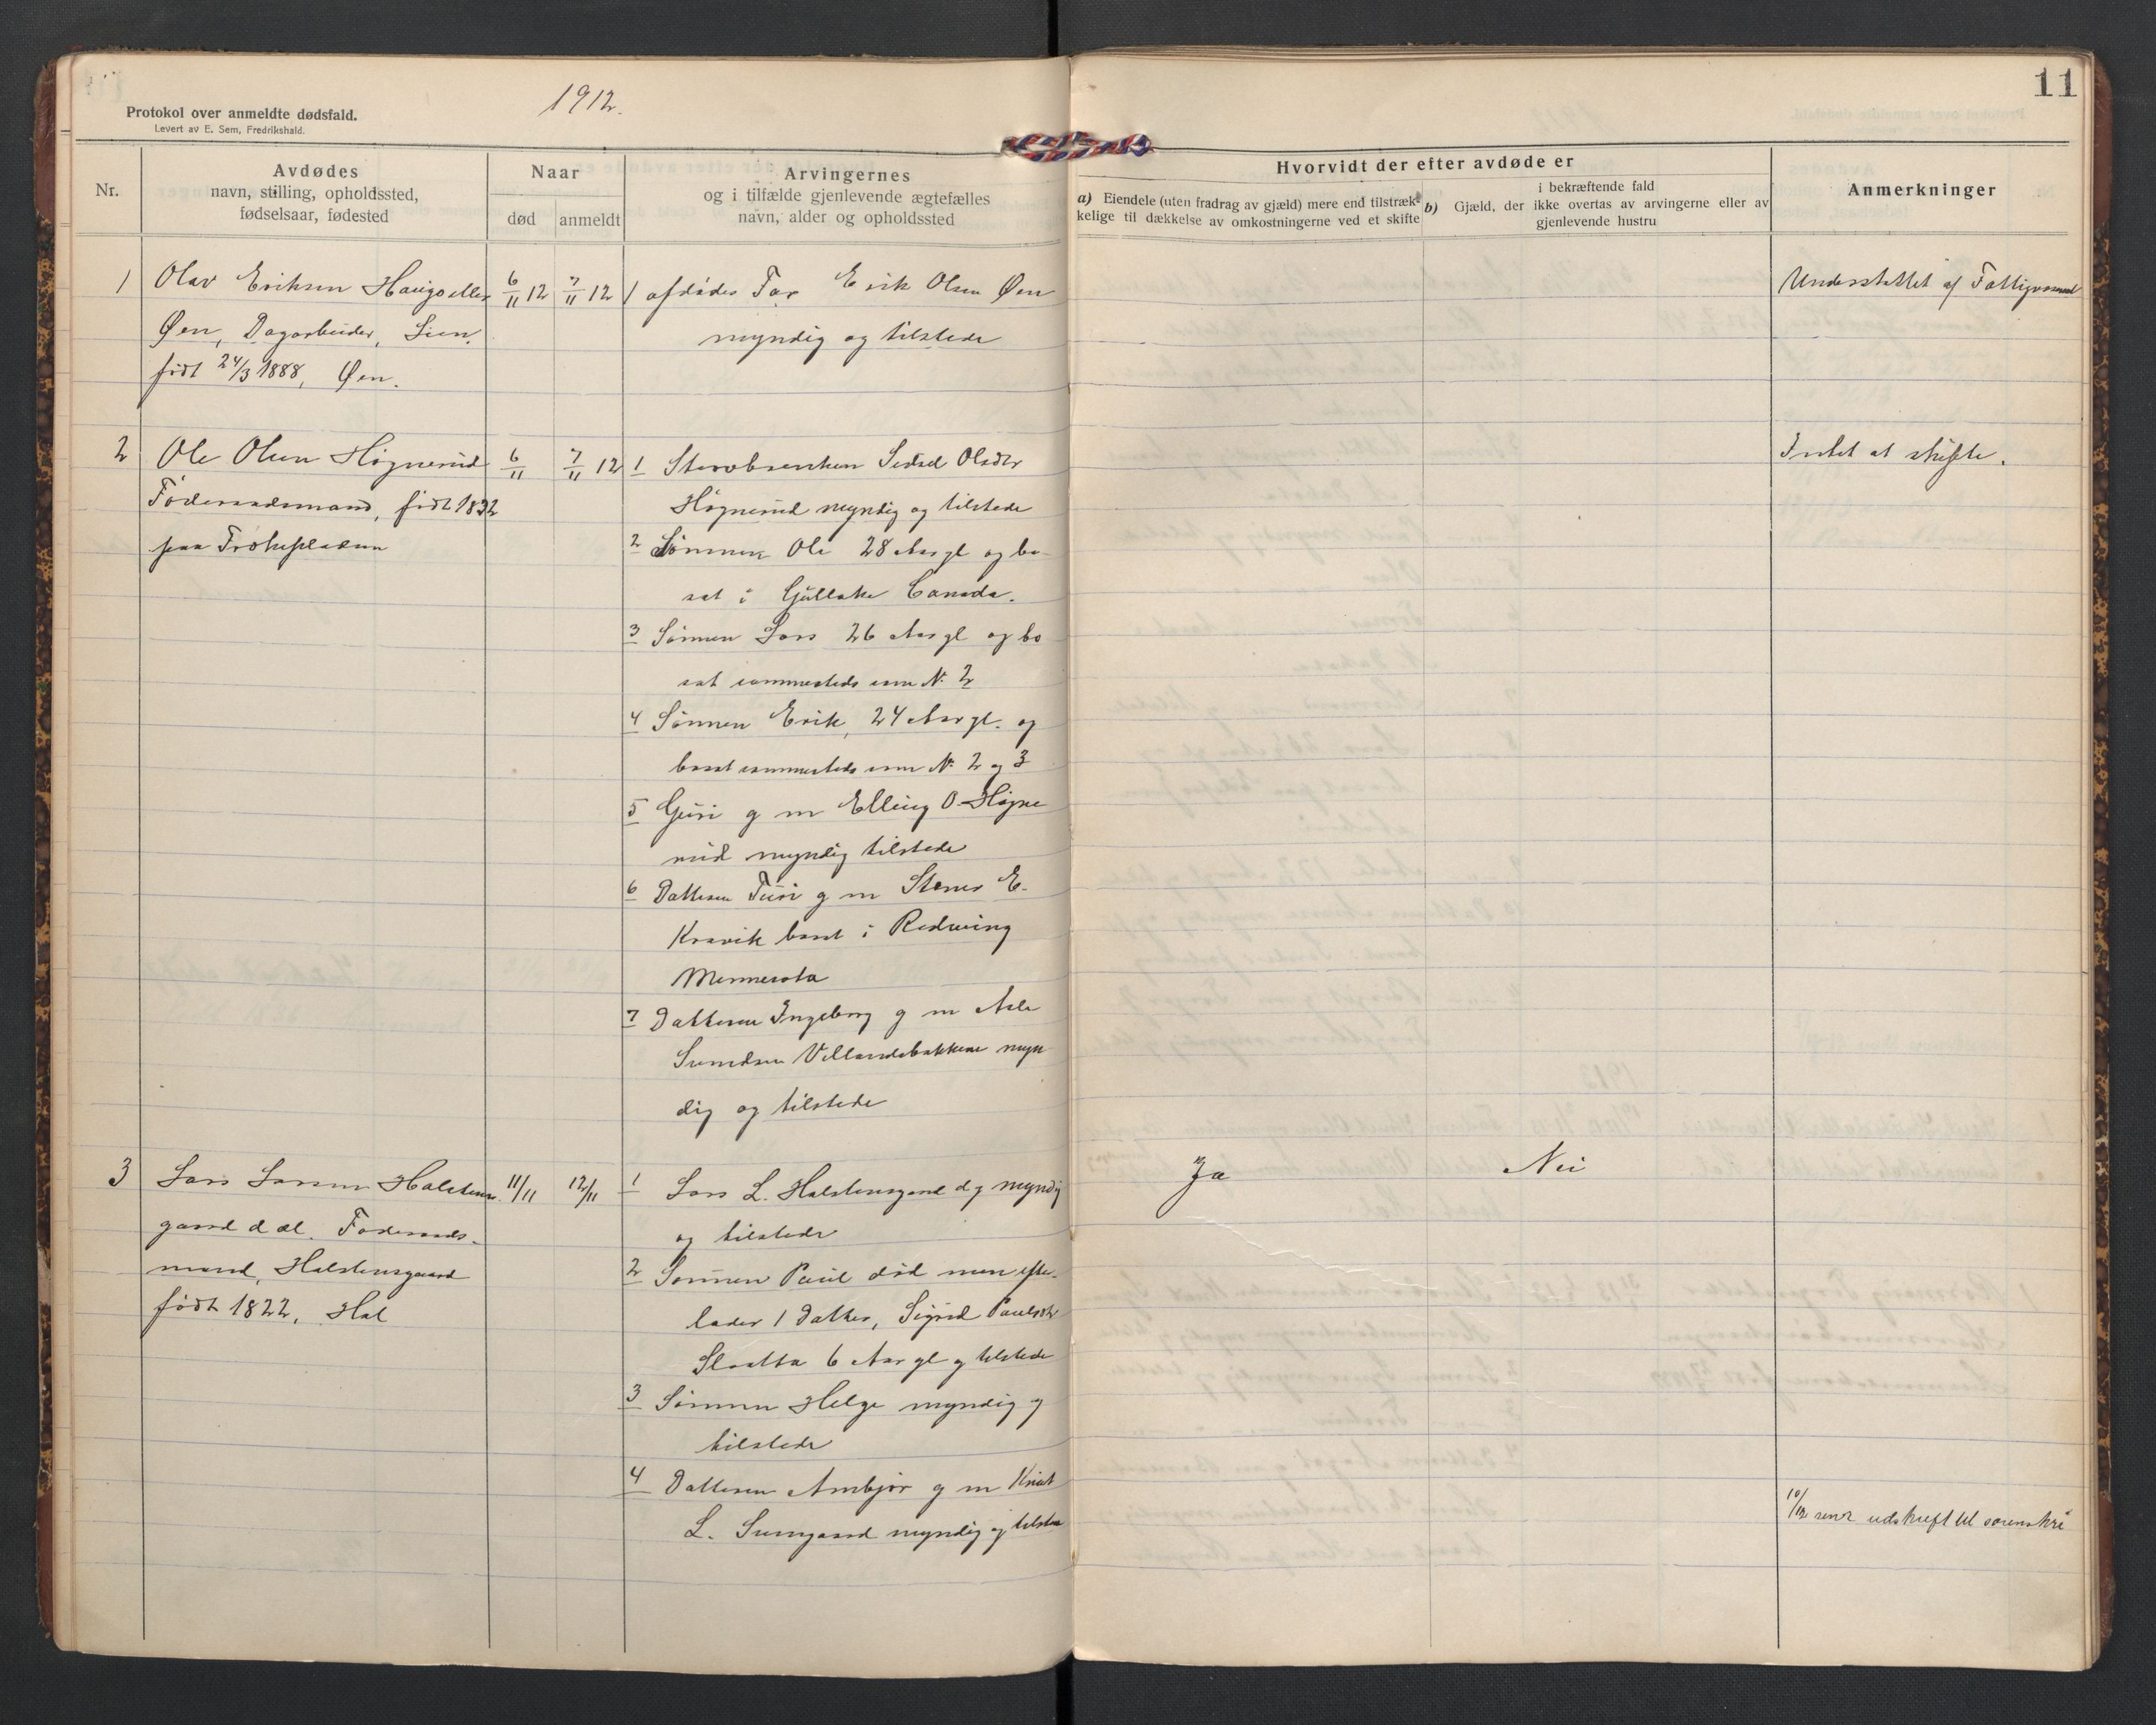 Protokol over anmeldte dødsfald.
Levert av E. Sem, Fredrikshald.
1912.
11
Nr.
Avdødes
navn, stilling, opholdssted,
fødselsaar, fødested
Naar
død
anmeldt
Arvingernes
og i tilfælde gjenlevende ægtefælles
navn, alder og opholdssted
Hvorvidt der efter avdøde er
a) Eiendele (uten fradrag av gjæld) mere end tilstræk-
kelige til dækkelse av omkostningerne ved et skifte
i bekræftende fald
b) Gjæld, der ikke overtas av arvingerne eller av
gjenlevende hustru
Anmerkninger
1
Olav Eriksen Haugs eller
Øen, Dagarbeider, Lien,
født 24/3 1888, Øen.
6/11 12
7/11 12
1 afdødes Far Erik Olsen Øen
myndig og tilstede
Understøttet af
2
Ole Olsen Høgnerud
Føderaadsmand, født 1832
paa
6/11
7/11 12
1 Olsdtr
Høgnerud myndig og tilstede
2 Sønnen Ole 28 Aar gl og bo-
sat i Canada.
3 Sønnen Lars 26 Aar gl og bo
sat sammesteds som N. 2
4 Sønnen Erik, 24 Aar gl. og
bosat sammesteds som N. 2 og 3
5 Guri g m Elling O. Høgne
rud myndig tilstede
6 Datteren Turi g m Stener E.
Kravik bosat i Redwing
Mennesota
7 Datteren Ingeborg g m Asle
Svendsen Villandsbakkene myn
dig og tilstede
Intet at skifte.
3
Lars Larsen Halstens-
gaard d æl. Føderaads-
mand, Halstensgaard
født 1822, Hol
11/11
12/11
1 Lars L. Halstensgaard d y myndig
og tilstede
2 Sønnen Paul død men efter-
lader 1 Datter, Sigrid Paulsdtr
Slaatta 6 Aar gl og tilstede
3 Sønnen Helge myndig og
tilstede
4 Datteren Ambjør g m Knut
L. Sungaard myndig og tilstede
Ja
Nei
10/12 send udskrift til sorenskri